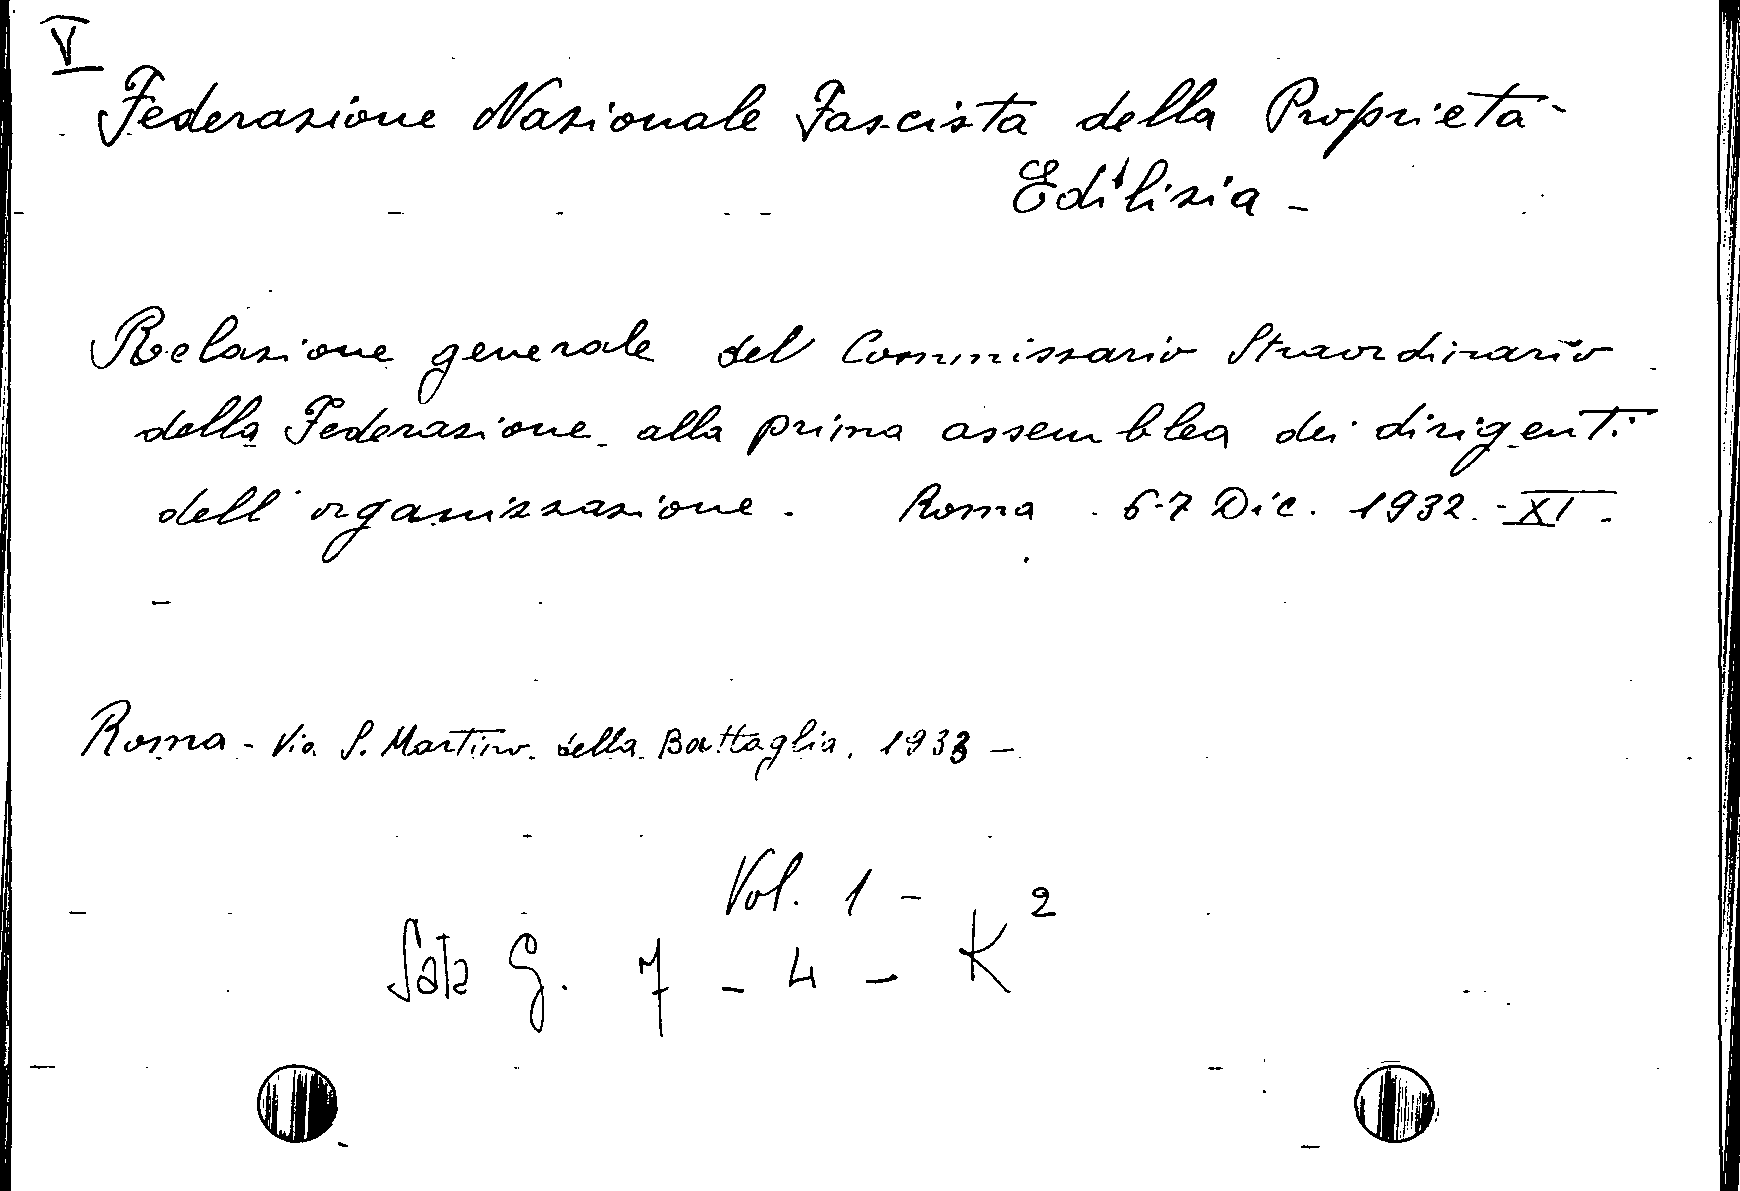 V
Federazione Nazionale Fascista della Proprietà
Edilizia -
Relazione generale del Commissario Straordinario
della Federazione alla prima assemblea dei dirigenti
dell'organizzazione. Roma . 6-7 Dic. 1932.-XI.
Roma - Via S. Martino della Battaglia, 1933 -
Vol. 1 -
Sala G. 7 - 4 - K²